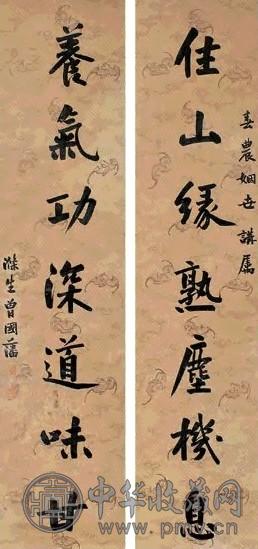 春農姻世講屬
住山緣熟塵機息
養氣功深道味甘
滌生曾國藩
中华收藏网